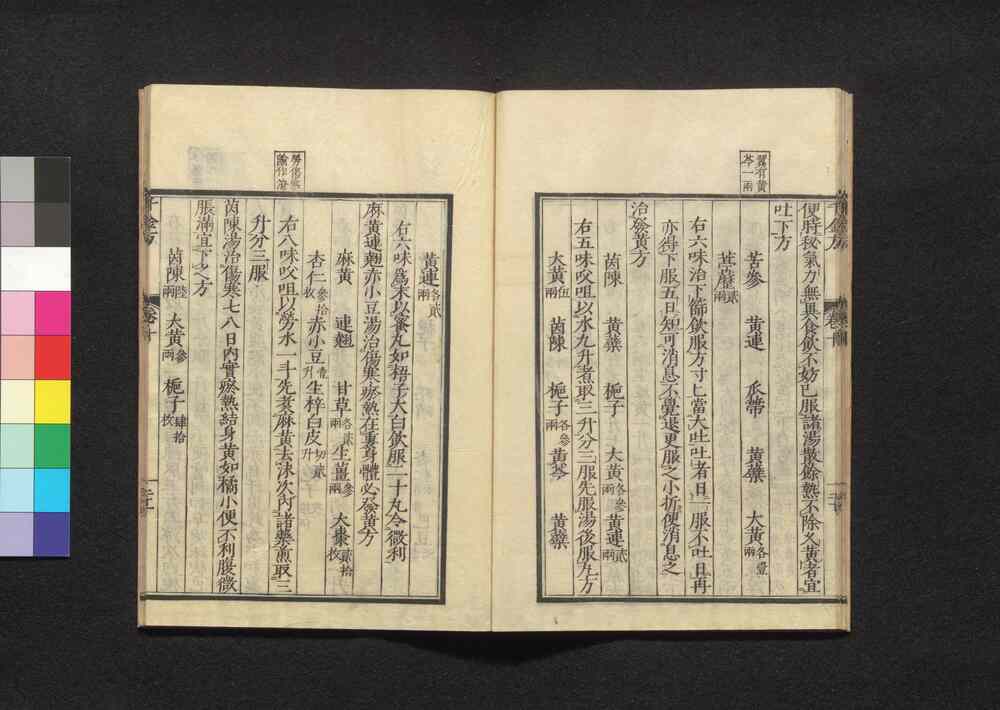 翼有黄
芩一兩
便時秘氣力無異食飲不妨已服諸湯散餘熱不除久黃者宜
吐下方
苦參 黃連 瓜蔕 黃蘗 大黃各壹兩
葶藶貳兩
右六味治下篩飲服方寸匕當大吐吐者日一服不吐日再
亦得下服五日知可消息不覺退更服之小折便消息之
治發黃方
茵陳 黃蘗 梔子 大黃各參兩 黃連貳兩
右五味㕮咀以水九升煮取三升分三服先服湯後服丸方
大黃伍兩 茵陳 梔子各參兩 黃芩 黃蘗
千金方
卷十
二十
黃連各貳兩
右六味爲末以蜜丸如梧子大白飲服二十丸令微利
麻黃連翹赤小豆湯治傷寒瘀熱在裏身體必發黃方
麻黃 連翹 甘草各貳兩 生薑參兩 大棗貳拾枚
杏仁參拾枚 赤小豆壹升 生梓白皮切貳升
右八味㕮咀以勞水一斗先煮麻黃去沫次內諸藥煎取三
升分三服
茵陳湯治傷寒七八日內實瘀熱結身黃如橘小便不利腹微
脹滿宜下之方
茵陳陸兩 大黃參兩 梔子肆拾枚
千金方
卷十